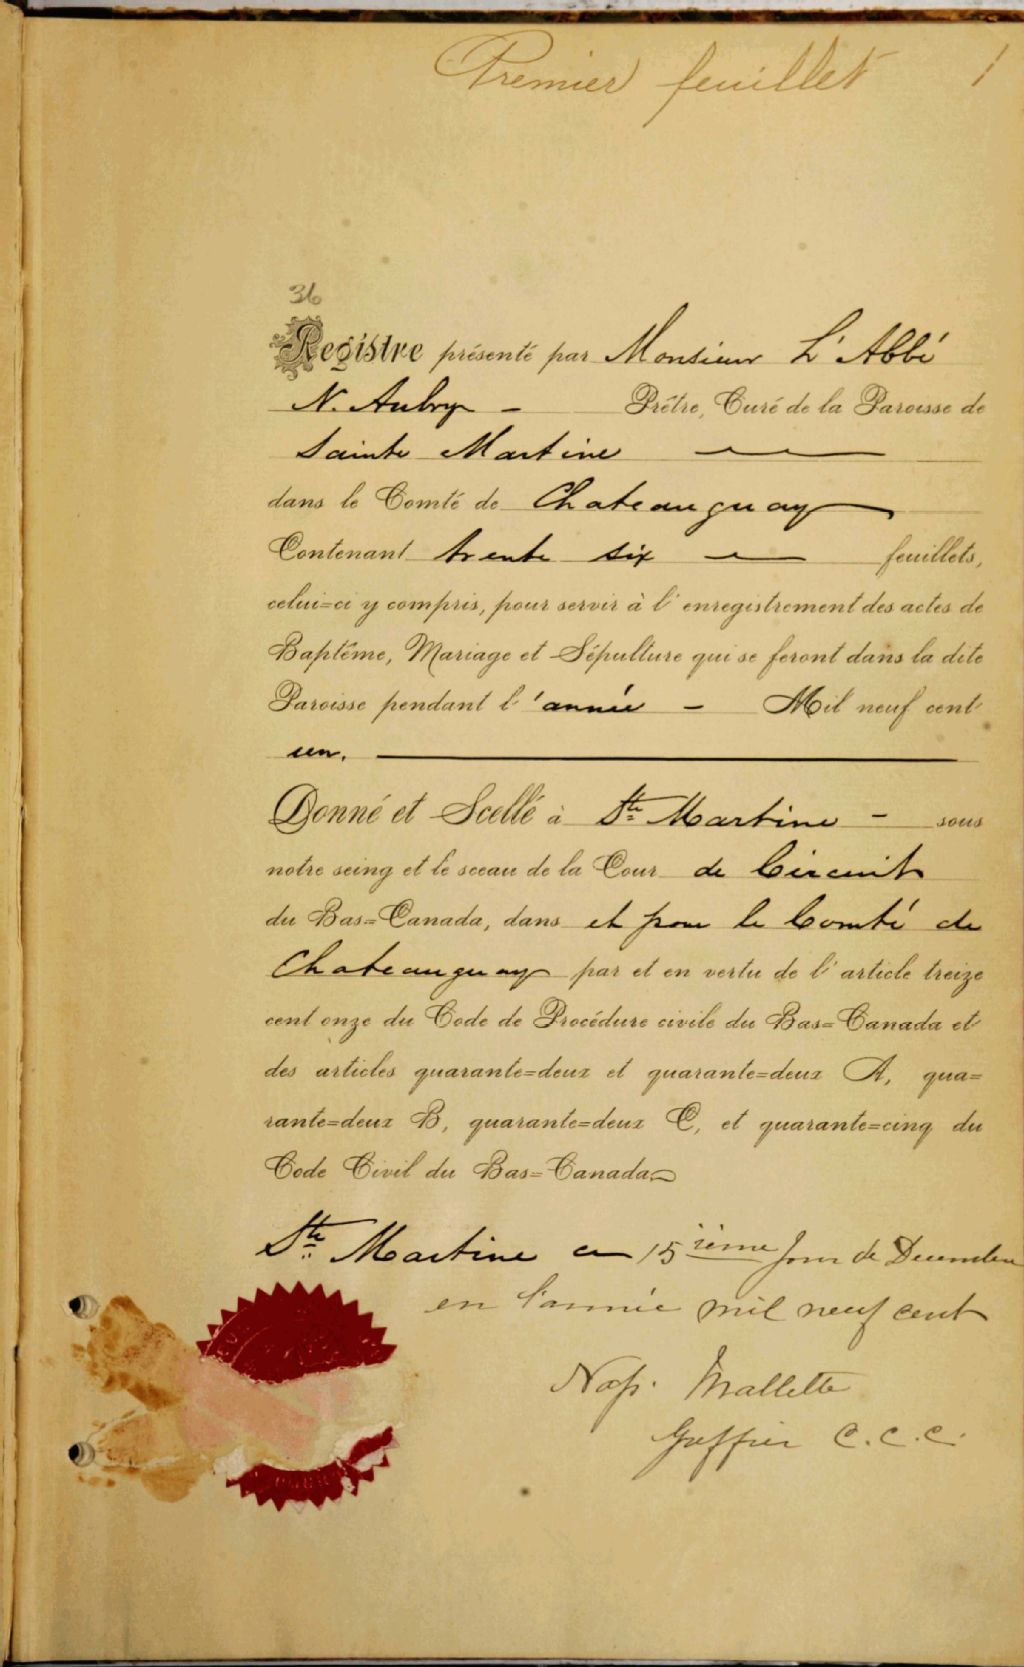 Premier feuillet 1
36
Registre présenté par Monsieur L'Abbé
N. Aubry - Prêtre, Curé de la Paroisse de
Sainte Martine
dans le Comté de Chateauguay
Contenant trente six feuillets,
celui=ci y compris, pour servir à l'enregistrement des actes de
Baptême, Mariage et Sépulture qui se feront dans la dite
Paroisse pendant l'année - Mil neuf cent
un.
Donné et Scellé à Ste Martine - sous
notre seing et le sceau de la Cour de Circuit
du Bas=Canada, dans et pour le Comté de
Chateauguay par et en vertu de l'article treize
cent onze du Code de Procédure civile du Bas=Canada et
des articles quarante=deux et quarante=deux A, qua=
rante=deux B, quarante=deux C, et quarante=cinq du
Code Civil du Bas=Canada
Ste Martine ce 15ième Jour de Decembre
en l'année mil neuf cent
Nap. Mallette
Greffier C.C.C.